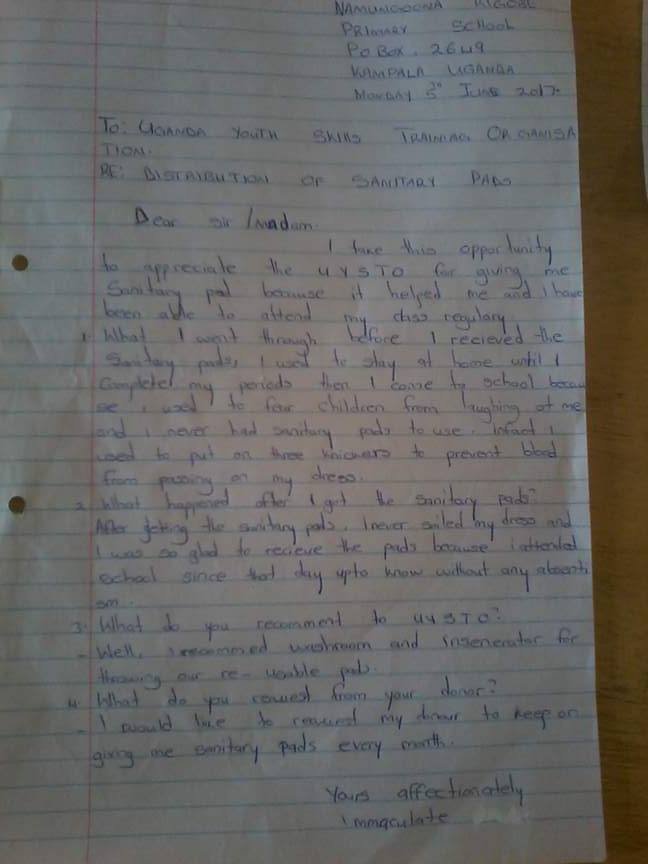 NAMUNGOONA KIGOBE
PRIMARY SCHOOL
PO BOX. 2649
KAMPALA UGANDA
MONDAY 5th JUNE 2017.
To: UGANDA YOUTH SKILLS TRAINING ORGANISA
TION.
RE: DISTRIBUTION OF SANITARY PADS
Dear Sir /Madam.
I take this opportunity
to appreciate the UYSTO for giving me
Sanitary pad because it helped me and I have
been able to attend my class regulary.
1. What I went through before I recieved the
Sanitary pads, I used to stay at home until I
Complete my periods then I come to school becau
se I used to fear children from laughing at me
and I never had sanitary pads to use. Infact I
used to put on three knickers to prevent blood
from passing on my dress.
2. What happened after I got the sanitary pads?
After getting the sanitary pads. I never soiled my dress and
I was so glad to recieve the pads because i attended
school since that day upto know without any absenti
sm.
3. What do you recomment to UYSTO?
- Well, I recommed washroom and insenerator for
throwing our re-usable pads.
4. What do you request from your donor?
- I would like to request my donour to keep on
giving me sanitary pads every month.
Yours affectionately
Immaculate